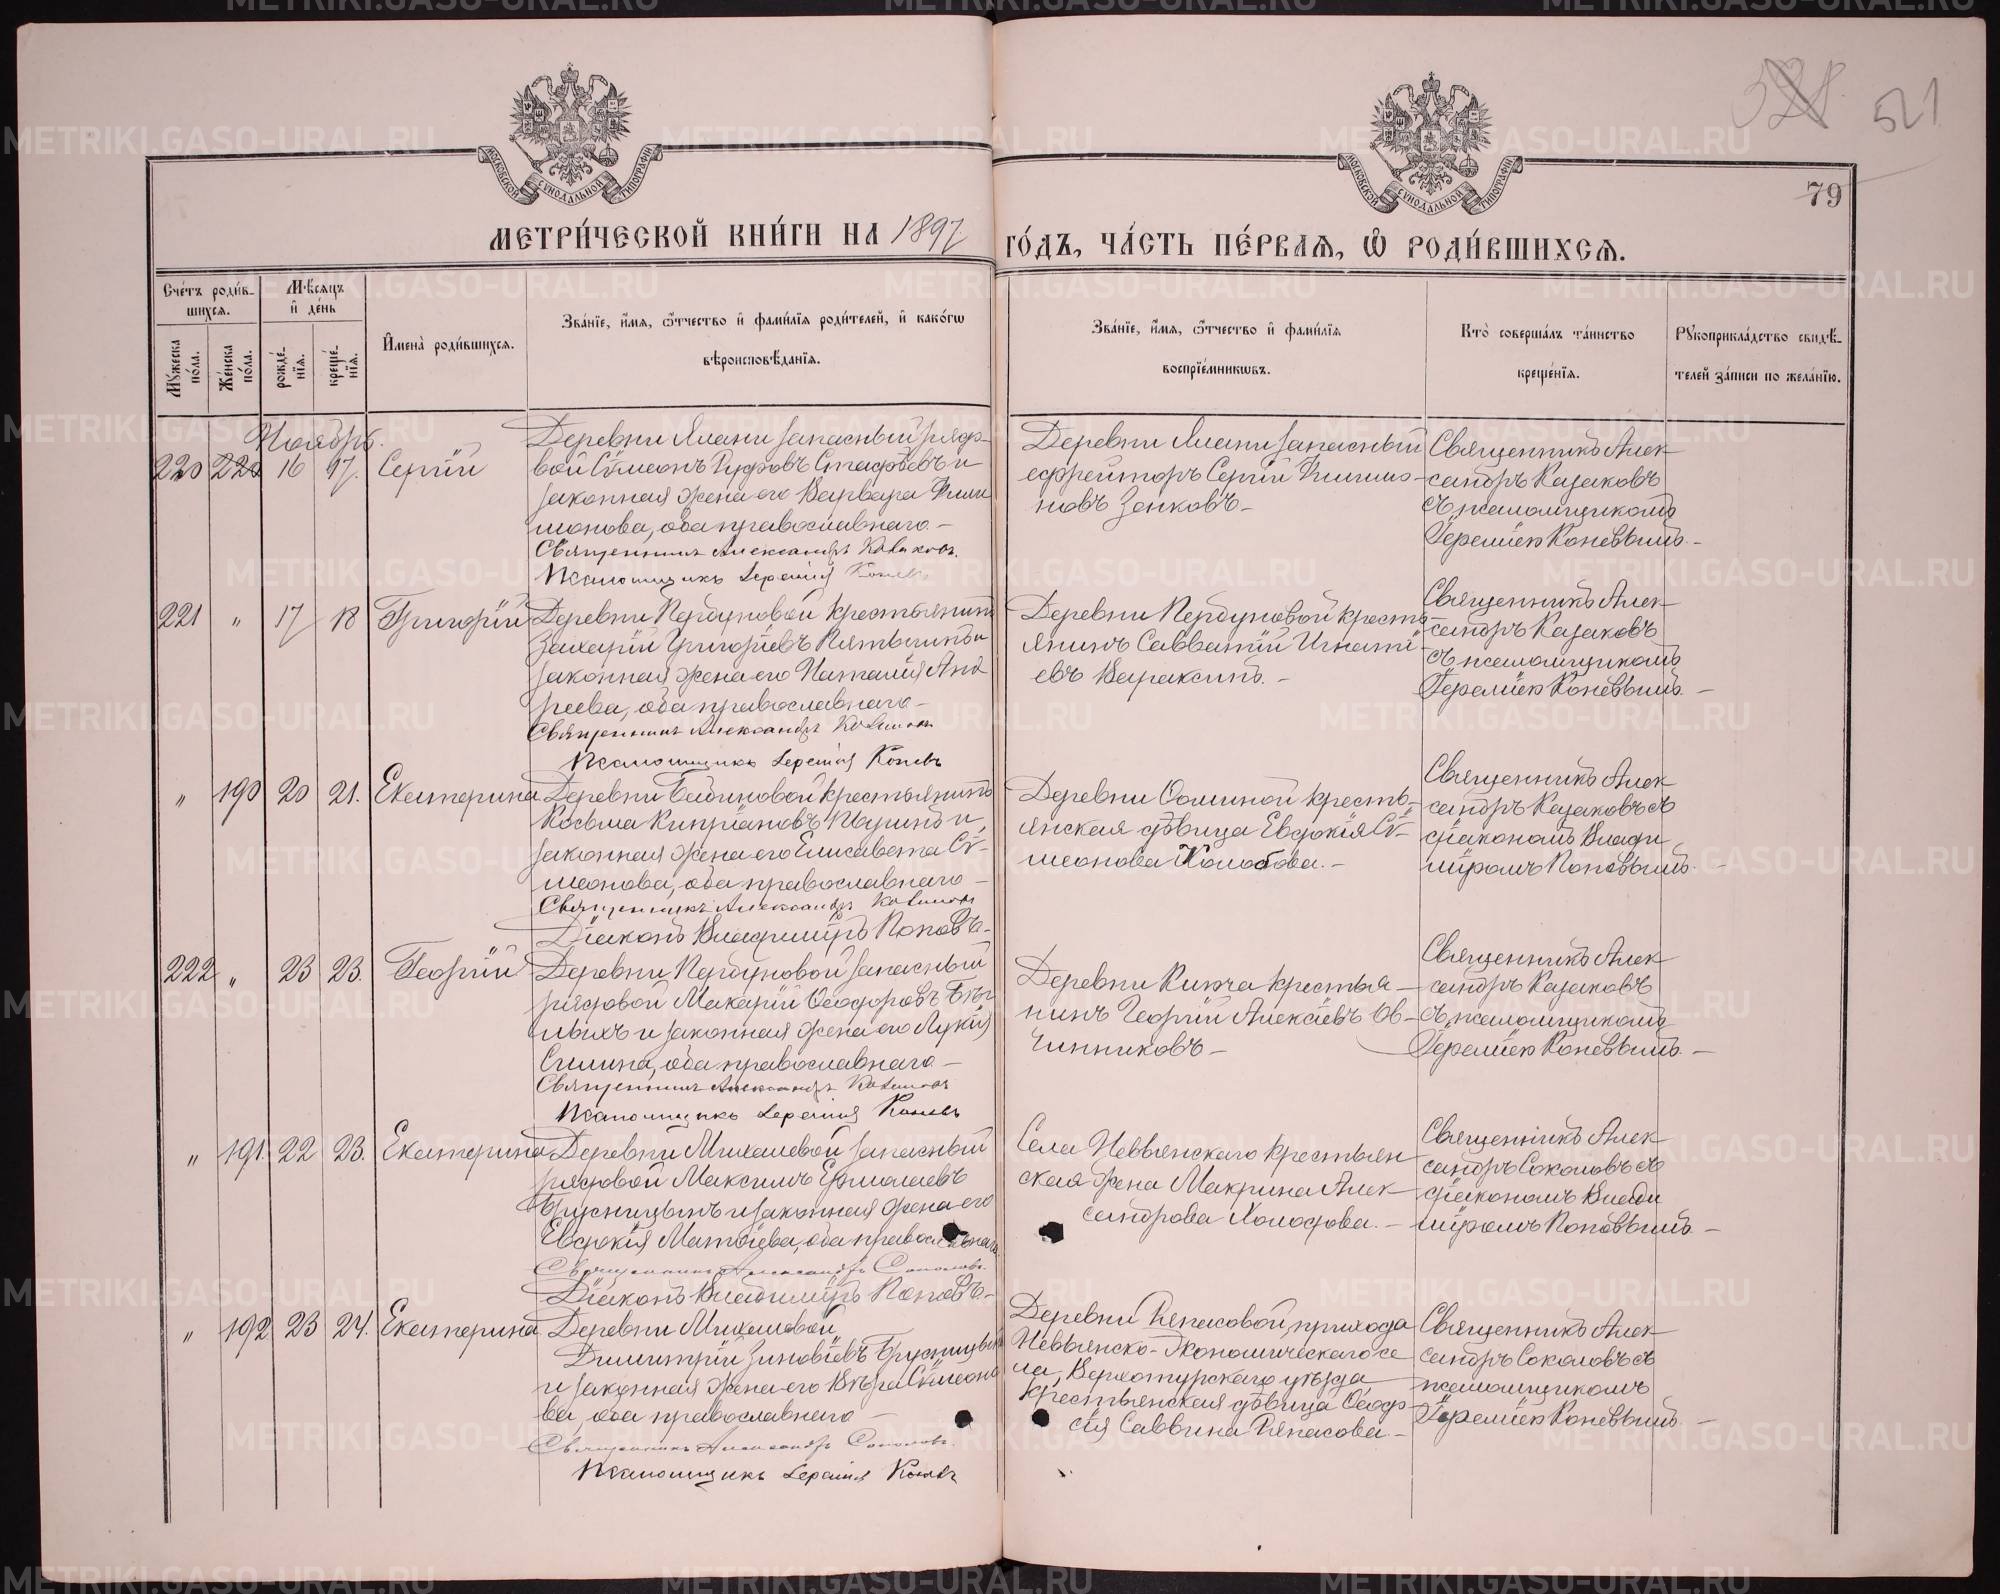 521
79
МОСКОВСКОЙ СѴНОДАЛЬНОЙ ТИПОГРАФІИ
МОСКОВСКОЙ СѴНОДАЛЬНОЙ ТИПОГРАФІИ
МЕТРИ́ЧЕСКОЙ КНИ́ГИ НА 1897 ГО́ДЪ, ЧА́СТЬ ПЕ́РВАЯ, Ѡ҆ РОДИ́ВШИХСЯ.
Сче́тъ роди́в-
шихся.
Мꙋ́жеска по́ла.
Же́нска по́ла.
Мѣ́сяцъ и҆ де́нь
рожде́-нїя.
креще́-нїя.
И҆мена̀ роди́вшихся.
Зва́нїе, и҆́мя, ѻ҆́тчество и҆ фами́лїя роди́телей, и҆ како́гѡ
вѣроисповѣ́данїя.
Зва́нїе, и҆́мя, ѻ҆́тчество и҆ фами́лїя
воспрїе́мникѡвъ.
Кто̀ соверша́лъ та́инство
креще́нїя.
Рꙋкоприкла́дство свидѣ́-
телей за́писи по жела́нїю.
Ноябрь.
220 220 16 17. Сергій
Деревни Ялани запасный рядо-
вой Сѷмеонъ Руфовъ Стафѣевъ и
законная жена его Варвара Фили
монова, оба православнаго -
Священникъ Александръ Казаковъ.
Псаломщикъ Іеремія Коневъ
Деревни Ялани запасный
ефрейторъ Сергій Филимо-
новъ Зенковъ -
Священникъ Алек
сандръ Казаковъ
съ псаломщикомъ
Іереміею Коневымъ. -
221 " 17 18 Григорій
Деревни крестьянинъ
Захарій Григоріевъ и
законная жена его Наталія Анд
реева, оба православнаго -
Священникъ Александръ Казаковъ
Псаломщикъ Іеремія Коневъ
Деревни кресть
янинъ Савватій Игнаті
евъ Вараксинъ. -
Священникъ Алек
сандръ Казаковъ
съ псаломщикомъ
Іереміею Коневымъ. -
" 190 20 21. Екатерина
Деревни крестьянинъ
Косьма Кипріановъ и
законная жена его Елисавета Сѷ-
меонова, оба православнаго -
Священникъ Александръ Казаковъ
Діаконъ Владиміръ Поповъ. -
Деревни Ѳоминой кресть-
янская дѣвица Евдокія Сѷ-
меонова Колобова. -
Священникъ Алек
сандръ Казаковъ съ
діакономъ Влади
міромъ Поповымъ. -
222 " 23 23. Георгій
Деревни запасный
рядовой Макарій Ѳеодоровъ Бѣл
ныхъ и законная жена его Лукія
Силина, оба православнаго -
Священникъ Александръ Казаковъ
Псаломщикъ Іеремія Коневъ
Деревни крестья -
нинъ Георгій Алексіевъ Ов-
чинниковъ -
Священникъ Алек
сандръ Казаковъ
съ псаломщикомъ
Іереміею Коневымъ. -
" 191 22 23. Екатерина
Деревни Михалевой запасный
рядовой Максимъ Ермолаевъ
Брусницынъ и законная жена его
Евдокія Матѳіева, оба православнаго
Священникъ Александръ Соколовъ.
Діаконъ Владиміръ Поповъ. -
Села Невьянскаго крестьян
ская жена Макрина Алек
сандрова Холодова. -
Священникъ Алек
сандръ Соколовъ съ
діакономъ Влади
міромъ Поповымъ. -
" 192 23 24. Екатерина
Деревни Михалевой
Димитрій Зиновіевъ Брусницынъ
и законная жена его Вѣра Сѷмеоно
ва, оба православнаго -
Священникъ Александръ Соколовъ.
Псаломщикъ Іеремія Коневъ
Деревни Ряпасовой, прихода
Невьянско-Экономическаго се
ла, Верхотурскаго уѣзда
крестьянская дѣвица Ѳеодо-
сія Саввина Ряпасова. -
Священникъ Алек
сандръ Соколовъ съ
псаломщикомъ
Іереміею Коневымъ. -
METRIKI.GASO-URAL.RU